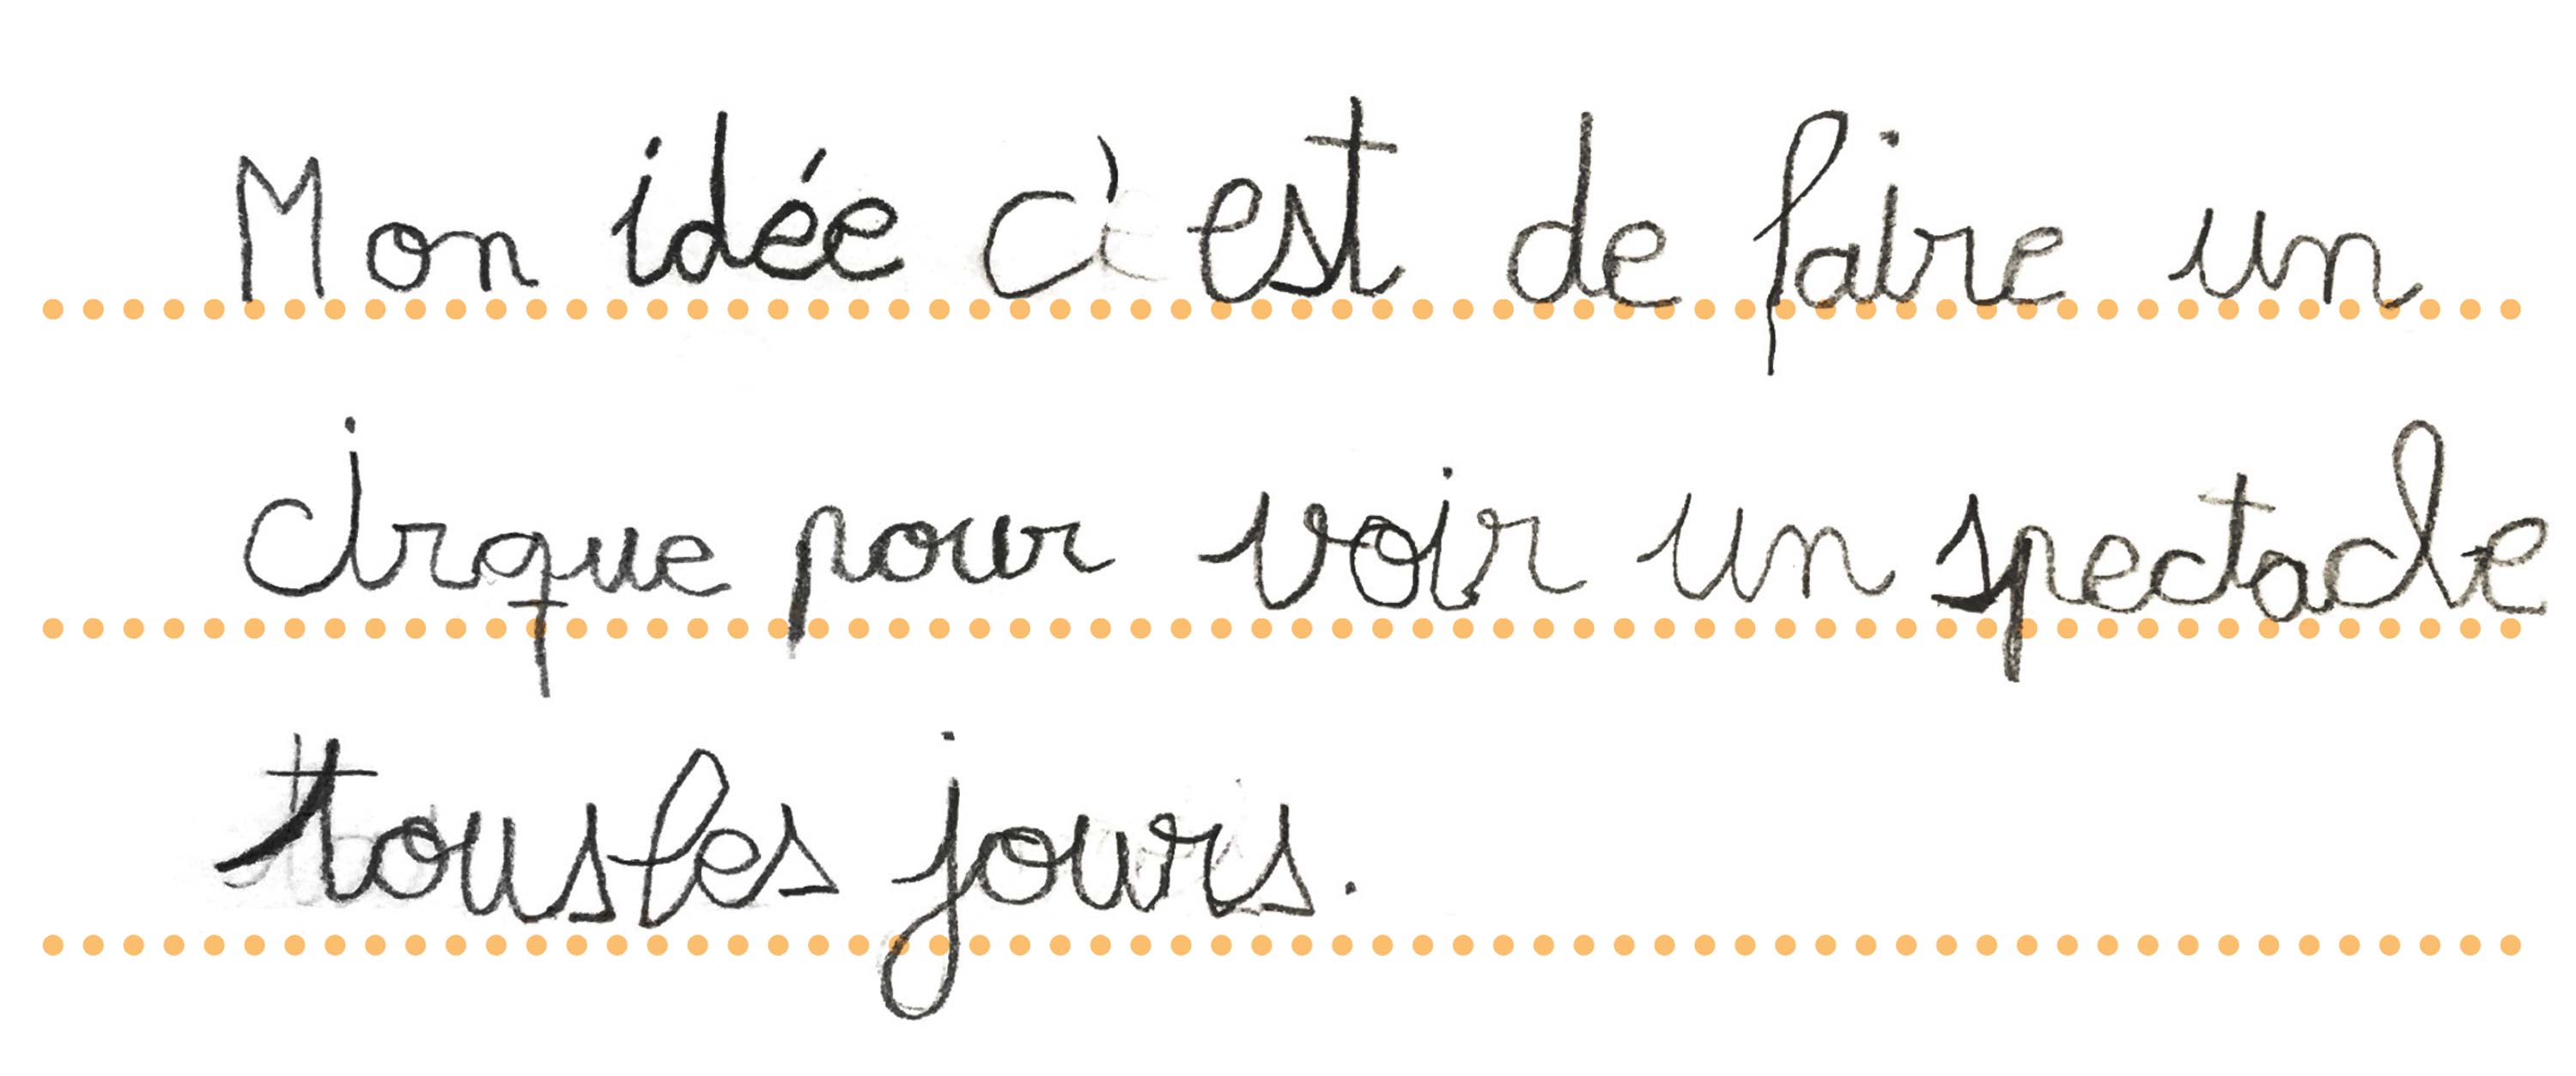 Mon idée c'est de faire un
cirque pour voir un spectacle
tous les jours.